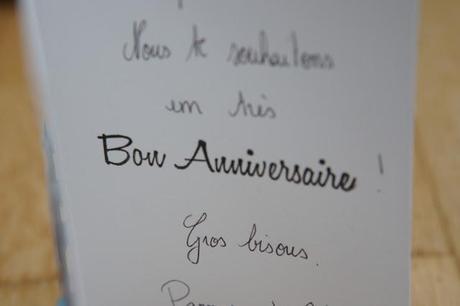 Nous te souhaitons
un très
Bon Anniversaire !
Gros bisous.